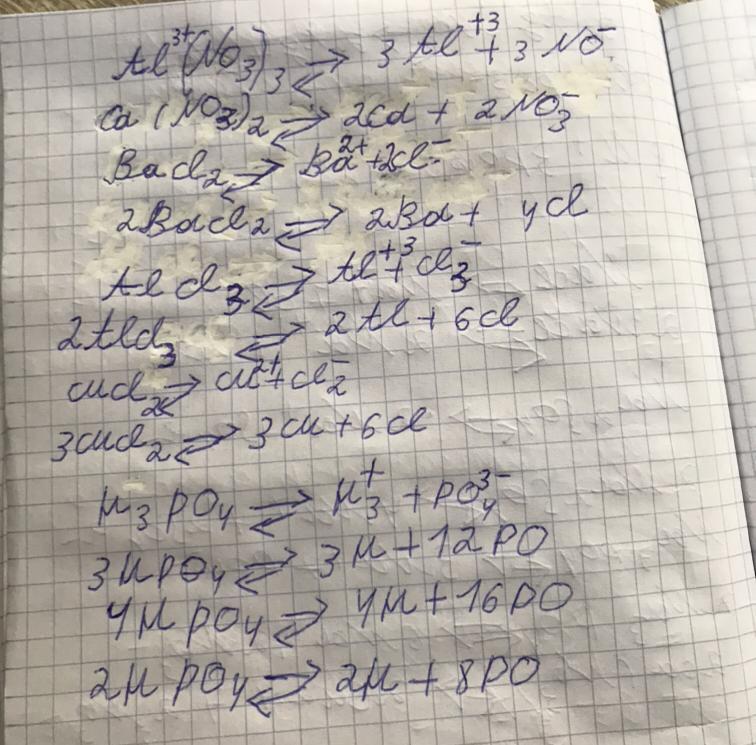 Al³⁺(NO₃)₃ ⇄ 3Al⁺³ + 3NO⁻
Ca(NO₃)₂ ⇄ 2Ca + 2NO₃⁻
BaCl₂ ⇄ Ba²⁺ + 2Cl⁻
2BaCl₂ ⇄ 2Ba + 4Cl
AlCl₃ ⇄ Al⁺³ + Cl₃⁻
2AlCl₃ ⇄ 2Al + 6Cl
CuCl₂ ⇄ Cu²⁺ + Cl₂⁻
3CuCl₂ ⇄ 3Cu + 6Cl
H₃PO₄ ⇄ H₃⁺ + PO₄³⁻
3HPO₄ ⇄ 3H + 12PO
4HPO₄ ⇄ 4H + 16PO
2HPO₄ ⇄ 2H + 8PO